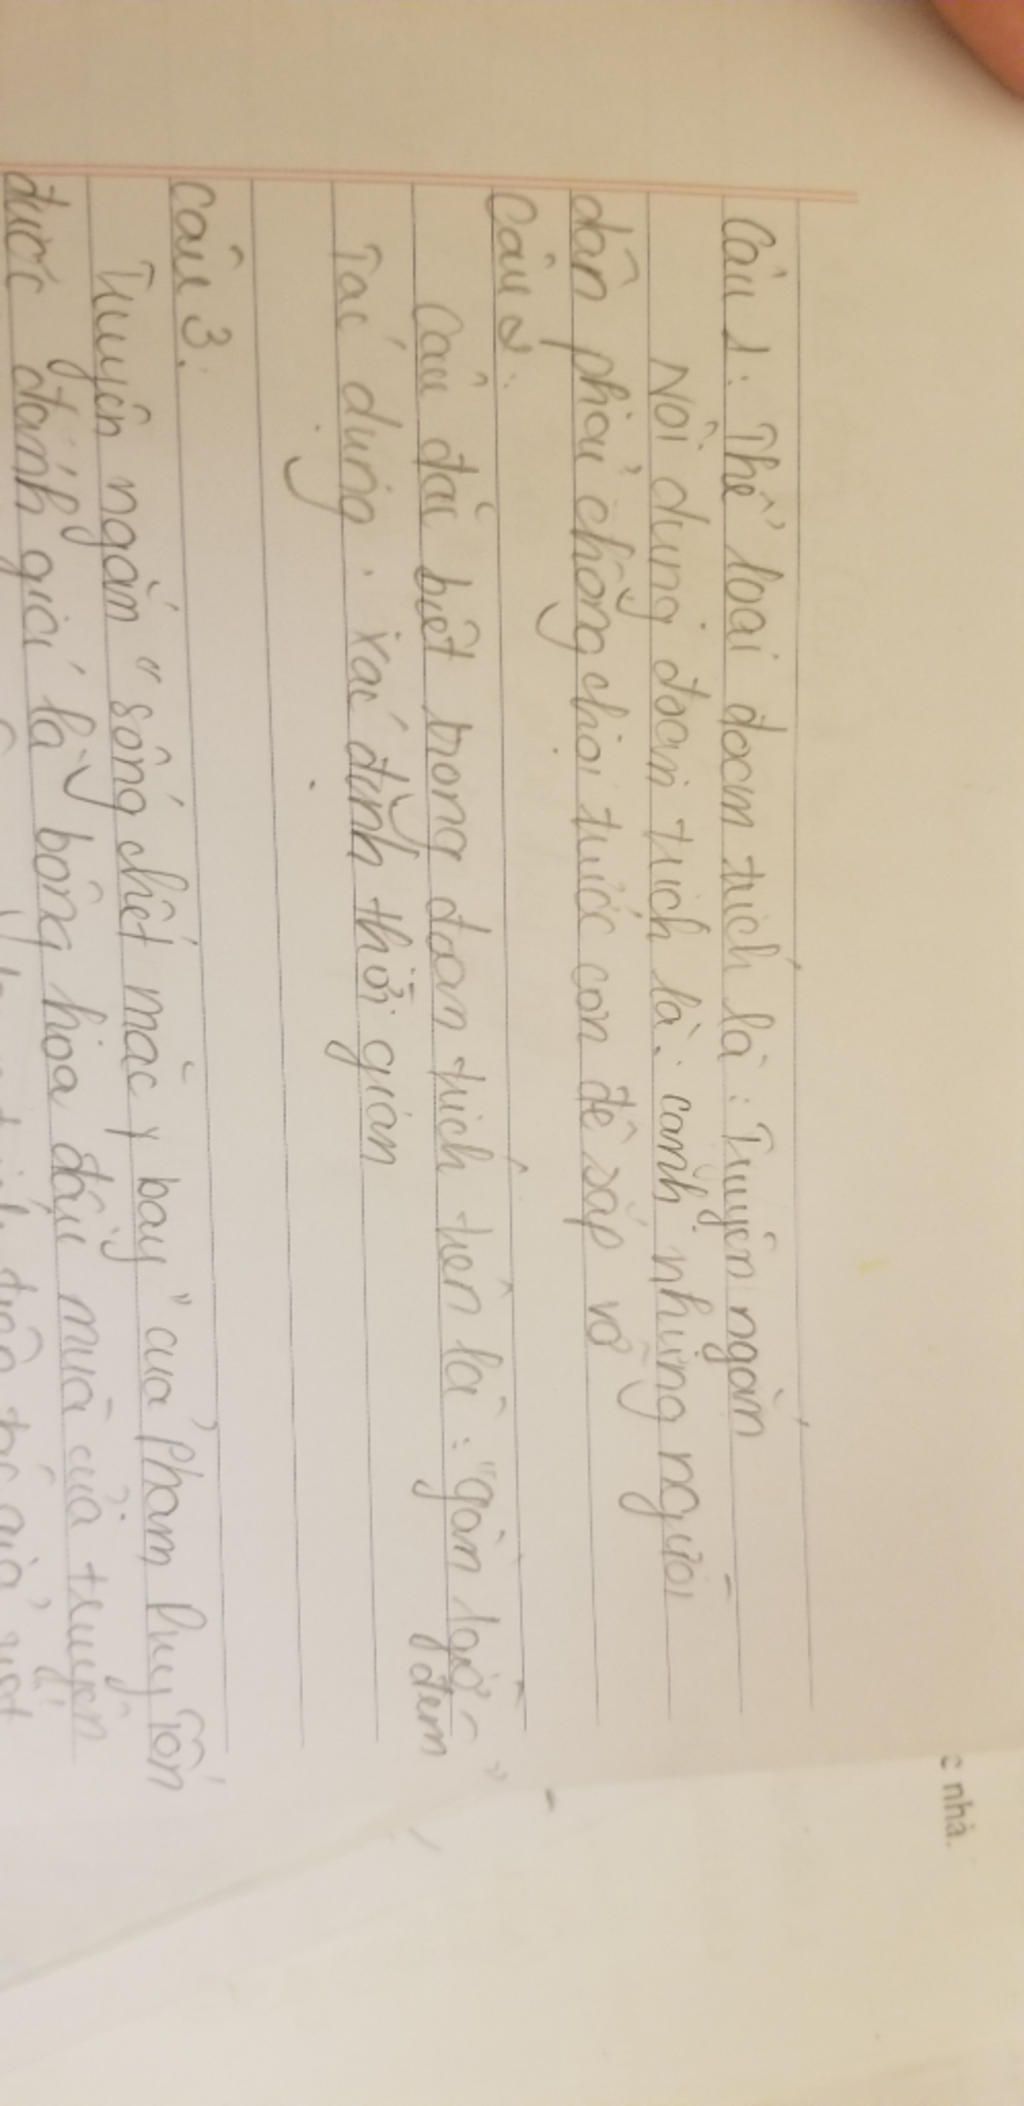 Câu 1: Thể loại đoạn trích là: Truyện ngắn
Nội dung đoạn trích là: cảnh những người
dân phải chống chọi trước con đê sắp vỡ
Câu 2:
Câu đặc biệt trong đoạn trích trên là: "gần 1 giờ đêm"
Tác dụng: xác định thời gian
Câu 3:
Truyện ngắn "sống chết mặc y bay" của Phạm Duy Tốn
được đánh giá là bông hoa đầu mùa của truyện
c nhà.